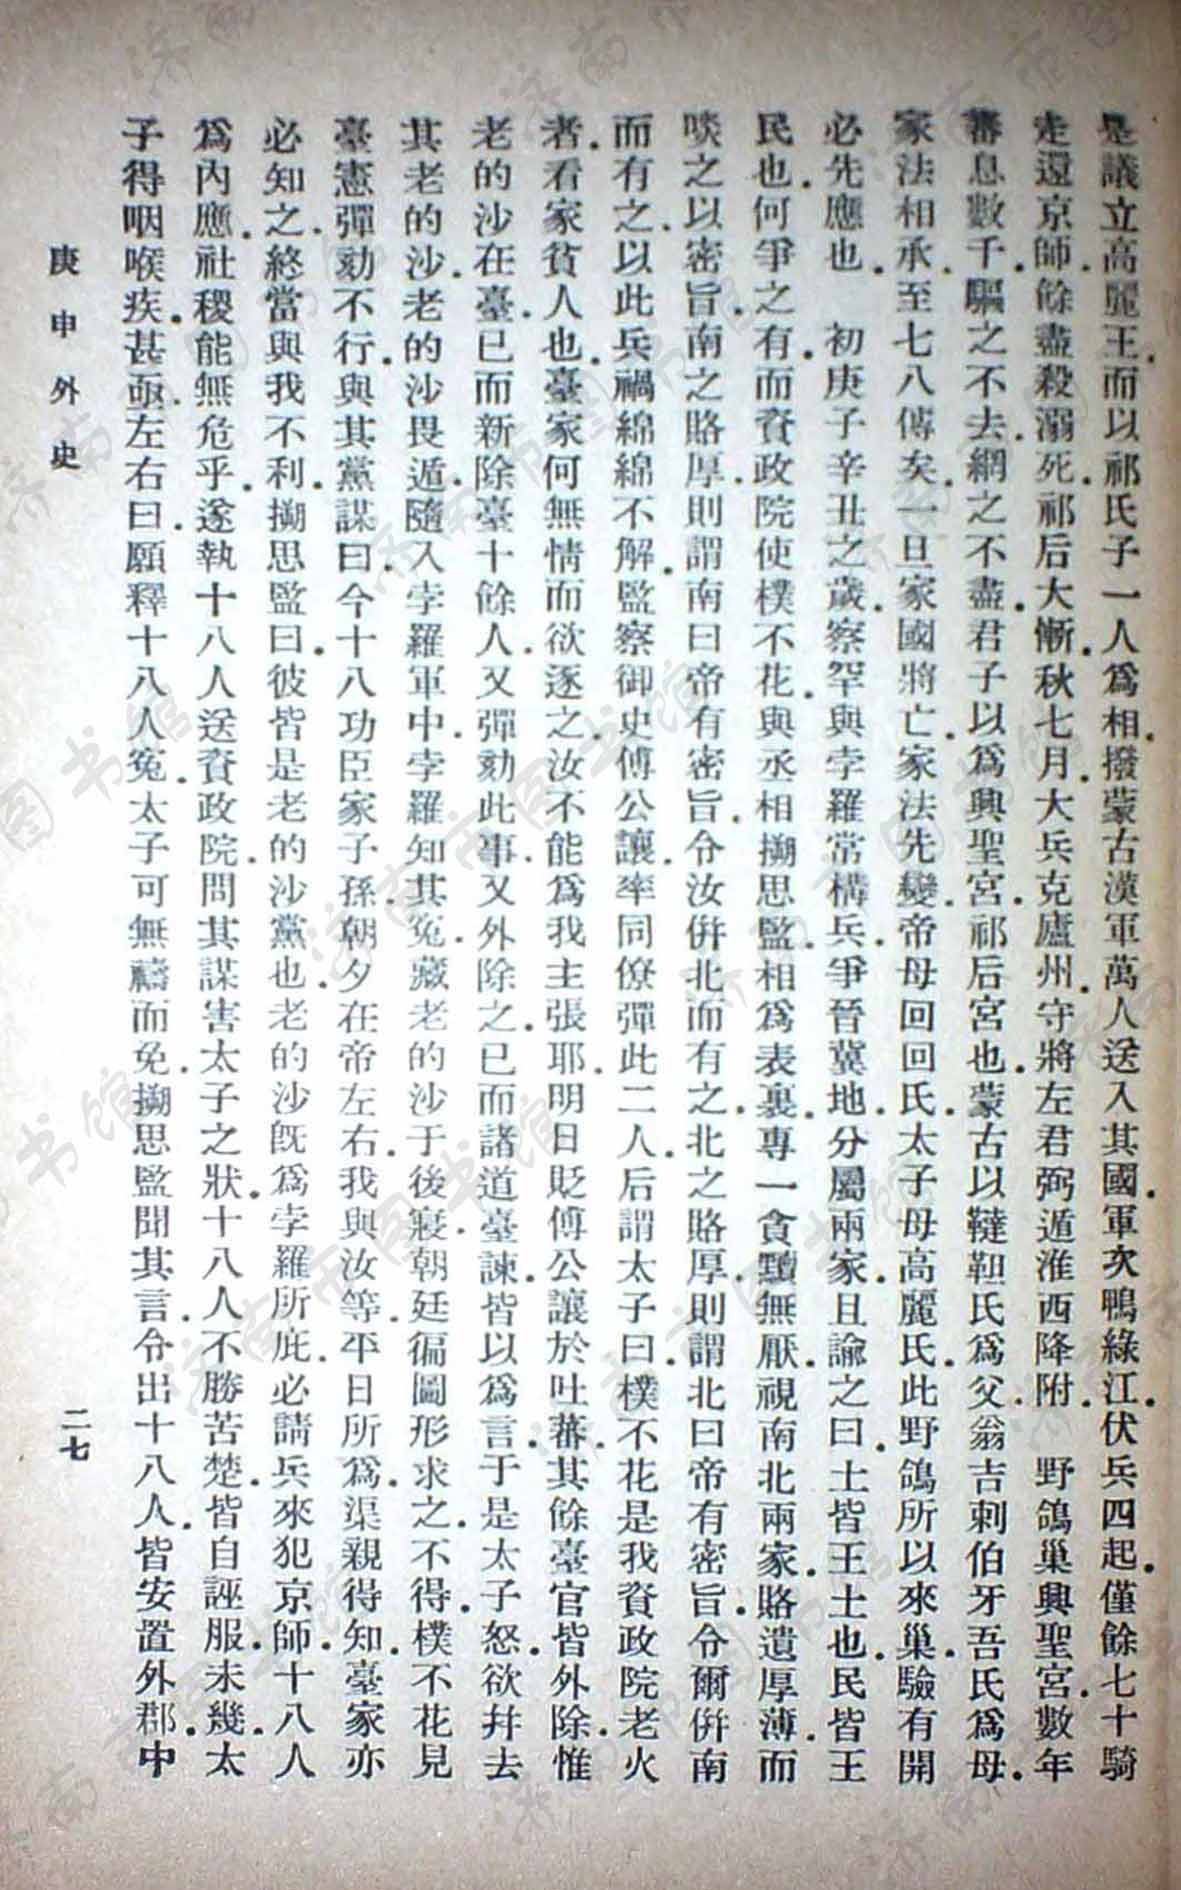 是議立高麗王．而以祁氏子一人爲相．撥蒙古漢軍萬人送入其國．軍次鴨綠江．伏兵四起．僅餘七十騎
走還京師．餘盡殺溺死．祁后大慚．秋七月．大兵克廬州．守將左君弼遁淮西降附．　野鴿巢興聖宮．數年
蕃息數千．驅之不去．網之不盡．君子以爲興聖宮．祁后宮也．蒙古以韃靼氏爲父．翁吉剌伯牙吾氏爲母．
家法相承．至七八傳矣．一旦家國將亡．家法先變．帝母回回氏．太子母高麗氏．此野鴿所以來巢．驗有開
必先應也．　初庚子辛丑之歲．察罕與孛羅常構兵．爭晉冀地．分屬兩家．且諭之曰．土皆王土也．民皆王
民也．何爭之有．而資政院使樸不花．與丞相搠思監．相爲表裏．專一貪黷無厭．視南北兩家賂遺厚薄．而
啖之以密旨．南之賂厚．則謂南曰．帝有密旨．令汝併北而有之．北之賂厚．則謂北曰．帝有密旨．令爾併南
而有之．以此兵禍綿綿不解．監察御史傅公讓．率同僚彈此二人．后謂太子曰．樸不花是我資政院老火
者．看家貧人也．臺家何無情而欲逐之．汝不能爲我主張耶．明日貶傅公讓於吐蕃．其餘臺官皆外除．惟
老的沙在臺．已而新除臺十餘人．又彈劾此事．又外除之．已而諸道臺諫．皆以爲言．于是太子怒．欲并去
其老的沙．老的沙畏遁．隨入孛羅軍中．孛羅知其冤．藏老的沙于後寢．朝廷徧圖形求之．不得．樸不花見
臺憲彈劾不行．與其黨謀曰．今十八功臣家子孫．朝夕在帝左右．我與汝等．平日所爲．渠親得知．臺家亦
必知之．終當與我不利．搠思監曰．彼皆是老的沙黨也．老的沙旣爲孛羅所庇．必請兵來犯京師．十八人
爲內應．社稷能無危乎．遂執十八人送資政院．問其謀害太子之狀．十八人不勝苦楚．皆自誣服．未幾．太
子得咽喉疾．甚亟．左右曰．願釋十八人冤．太子可無禱而免．搠思監聞其言．令出十八人．皆安置外郡．中
庚申外史
二七
济南市图书馆